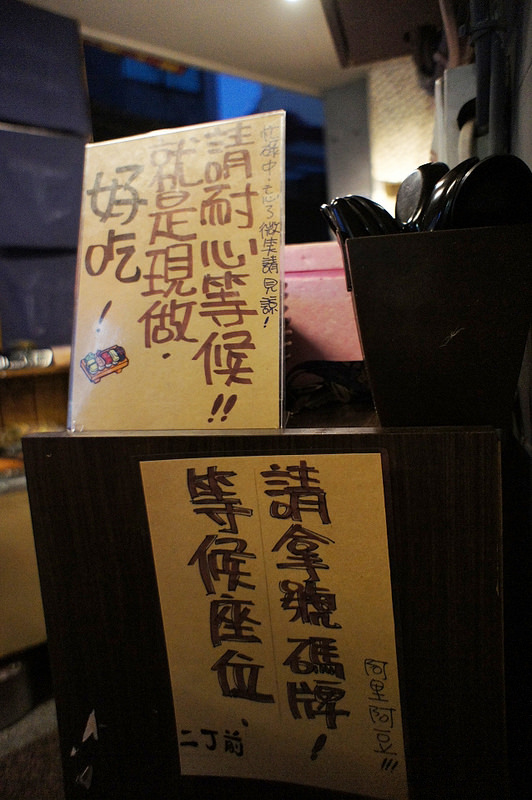 忙碌中.忘了微笑請見諒!
請耐心等候!!
就是現做.
好吃!
請拿號碼牌!
等候座位、
二丁前